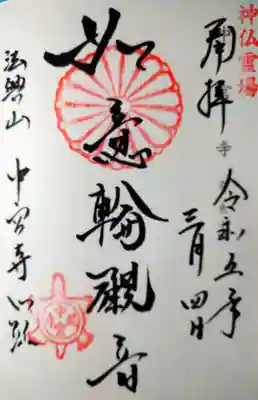 神仏霊場
奉拝
令和五年
三月四日
如意輪觀音
法興山　中宮寺門跡